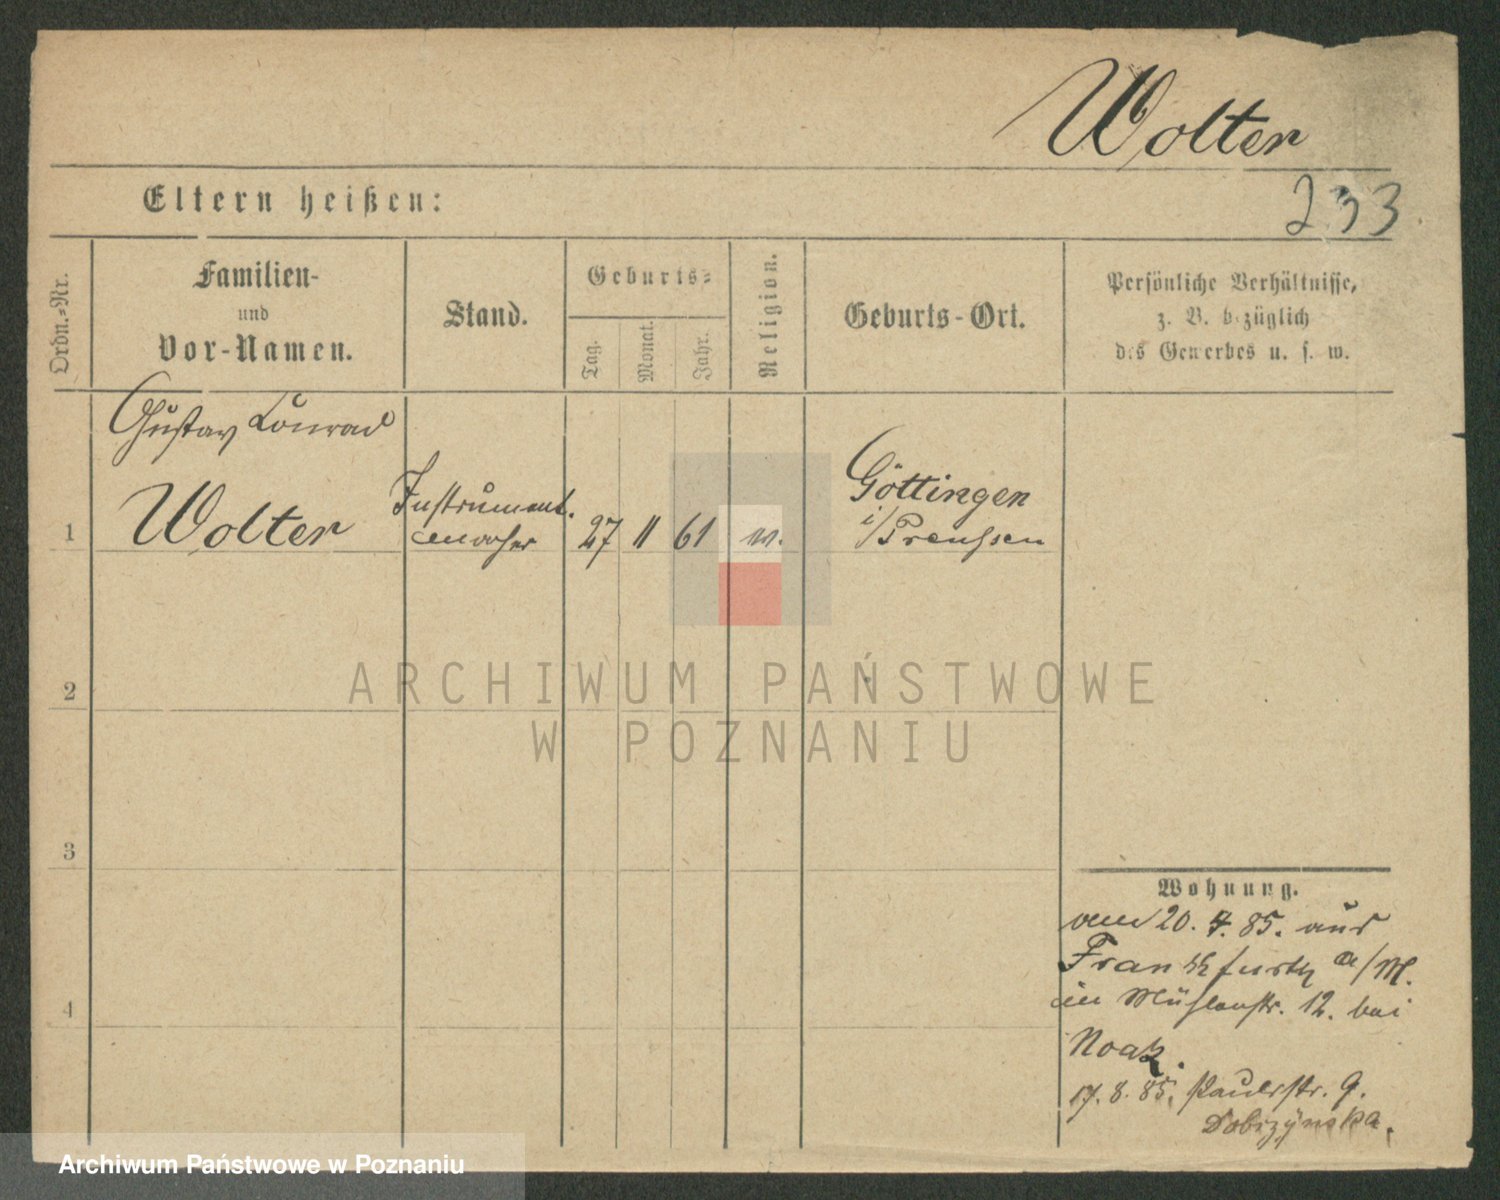 Wolter
233
Eltern heißen:
Ordn.=Nr.
Familien-
und
Vor-Namen.
Stand.
Geburts=
Tag.
Monat.
Jahr.
Religion.
Geburts-Ort.
Persönliche Verhältnisse,
z. B. bezüglich
des Gewerbes u. s. w.
Gustav Conrad
1 Wolter
Instrument.
macher
27 11 61
Göttingen
i/Preußen
2
3
4
Wohnung.
20. 4. 85. aus
Frankfurth a/M.
Mühlenstr. 12. bei
Noak.
17. 8. 85. Paulistr. 9.
Dobrzynska.
ARCHIWUM PAŃSTWOWE
W POZNANIU
Archiwum Państwowe w Poznaniu